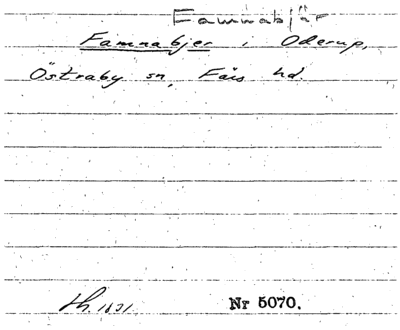 Famnabjär
Famnabjer, Oderup,
Östraby sn, Färs hd.
Nr 5070.